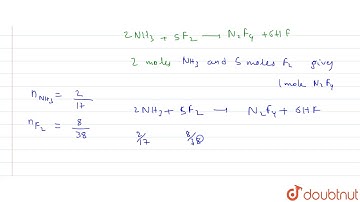 2NH3 + 5F2 → N2F4 + 6HF
2 moles NH3 and 5 moles F2 gives
1 mole N2F4
nNH3 = 2/17
2NH3 + 5F2 → N2F4 + 6HF
nF2 = 8/38
2/17 8/38
doubtnut